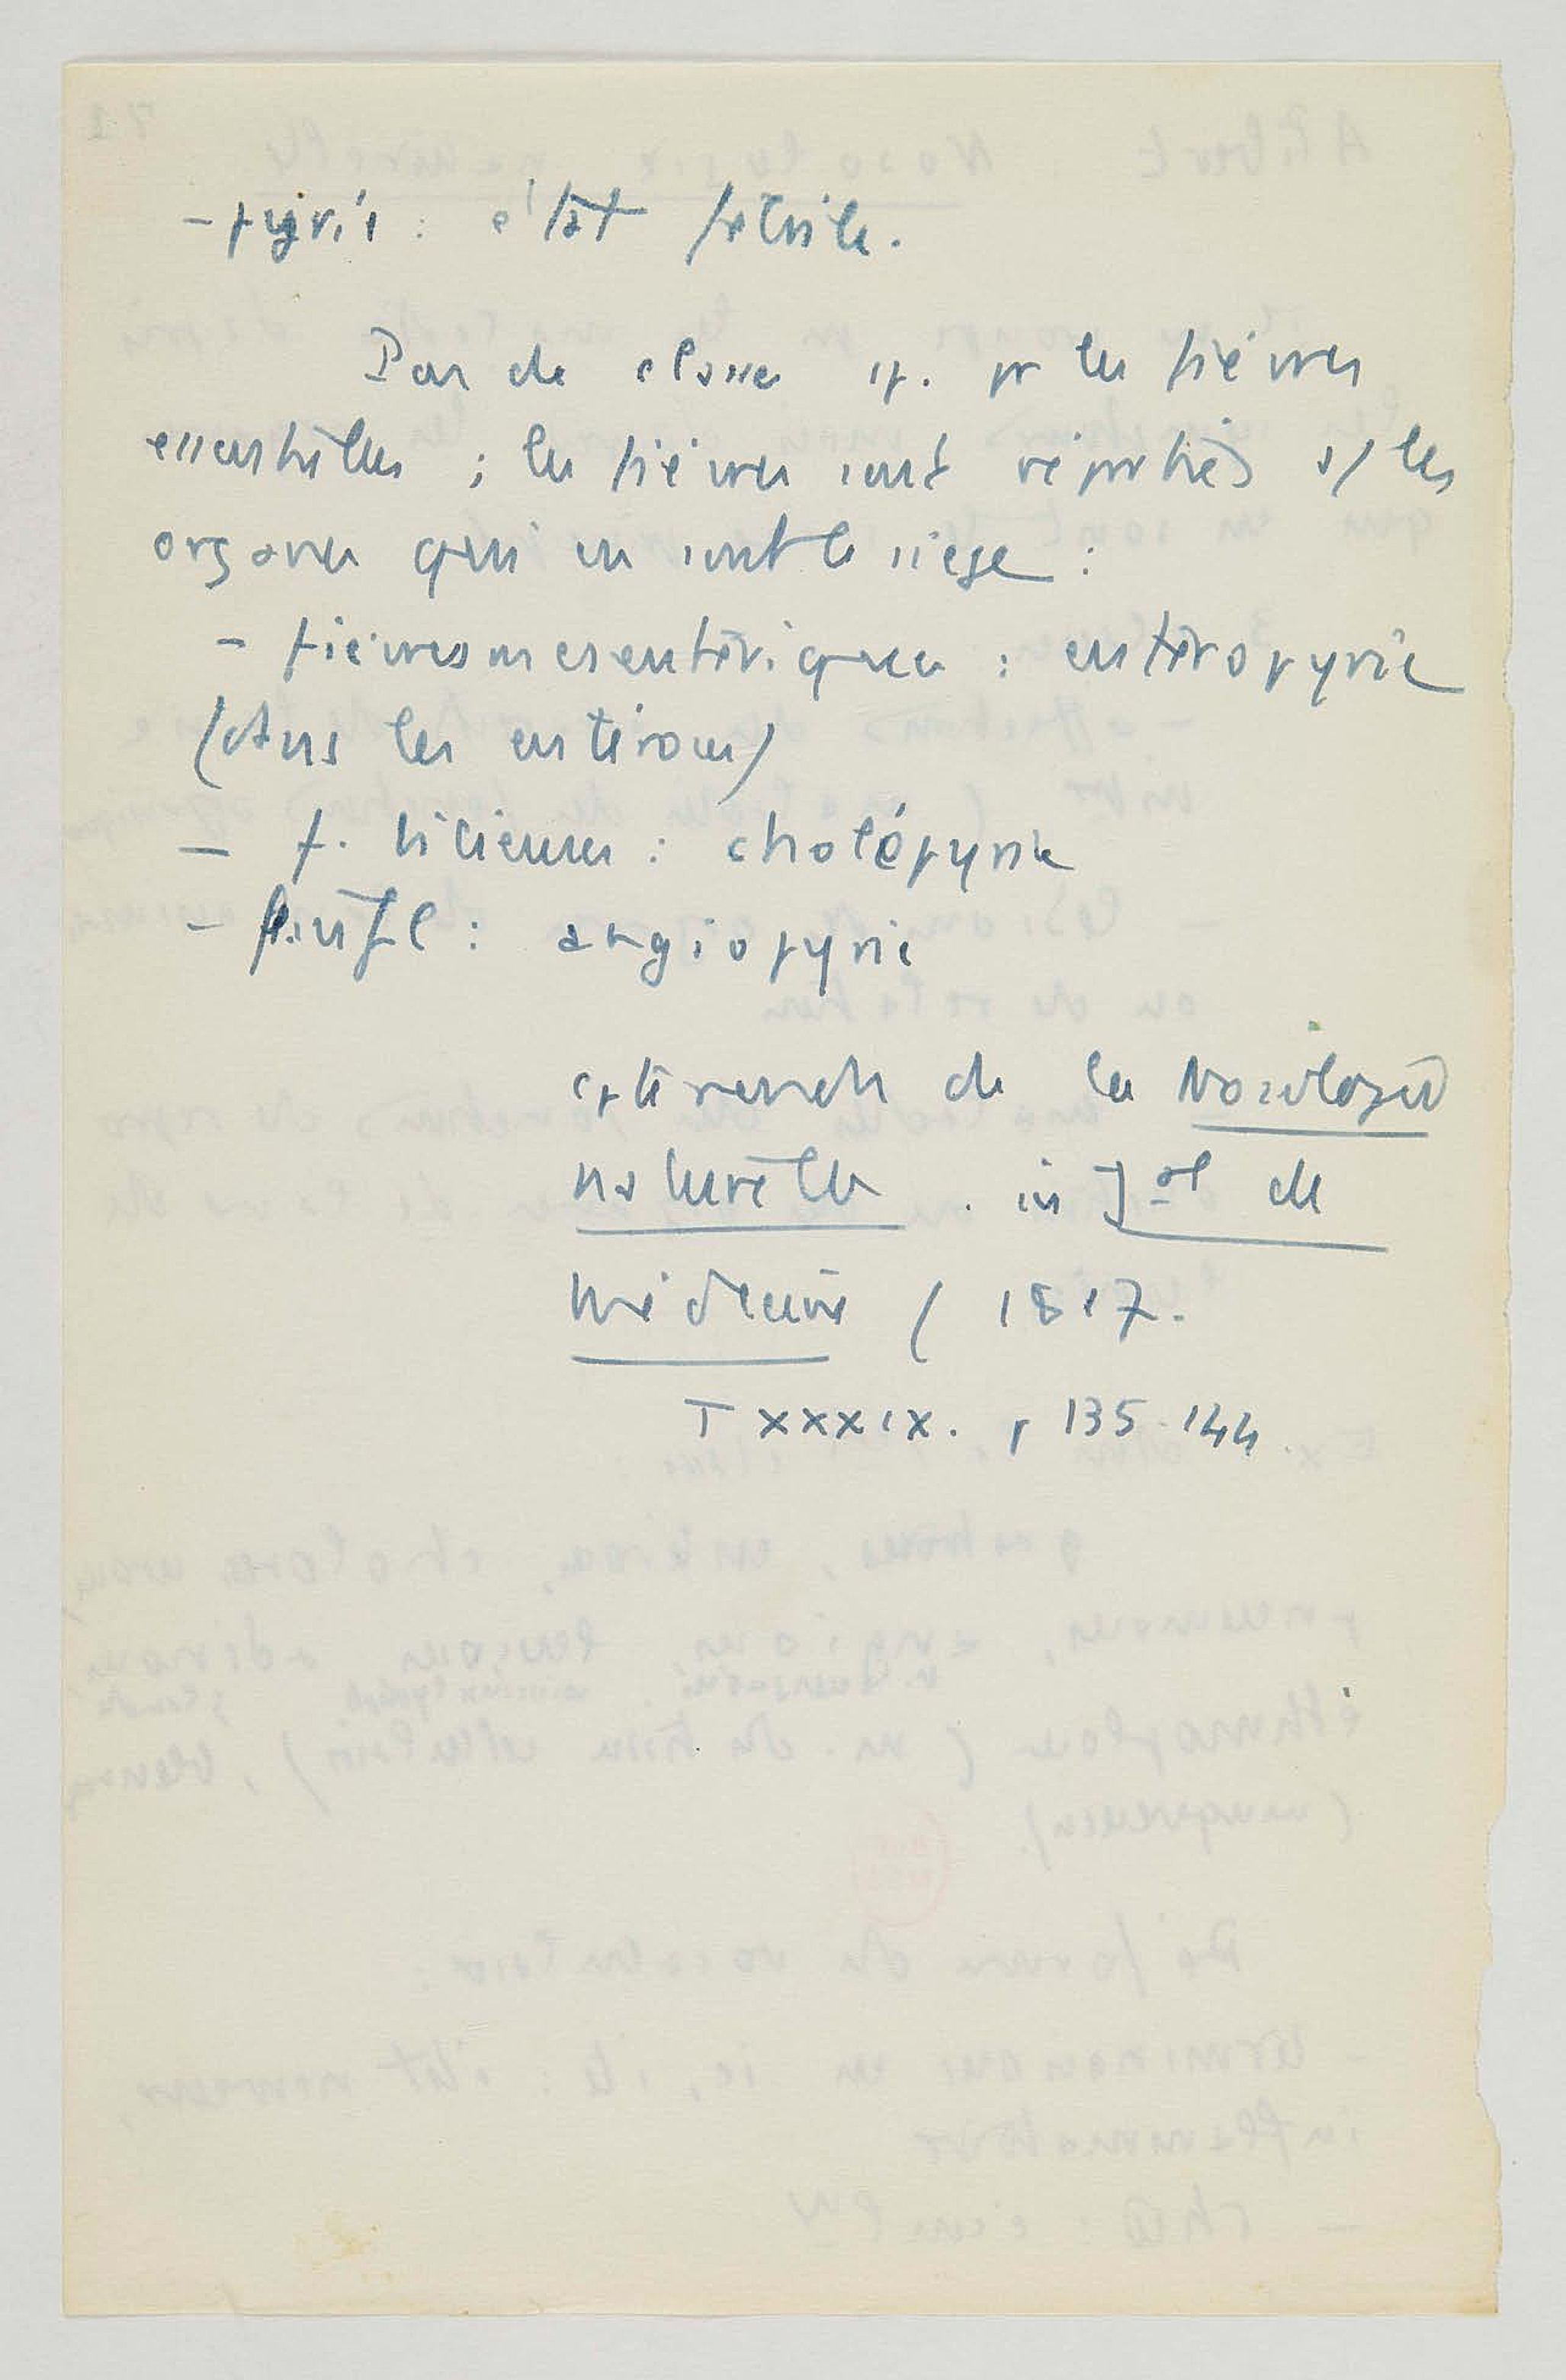 - pyrie : état fébrile.
Pas de classe sp. pr les fièvres
essentielles ; les fièvres sont réparties s/ les
organes qui en sont le siège :
- fièvres mesentériques : entéropyrie
(dans les entéroses)
- f. bilieuses : cholépyrie
- f. infl : angiopyrie
de la Nosologie
naturelle . in Jal de
médecine ( 1817.
T XXXIX. p 135-144